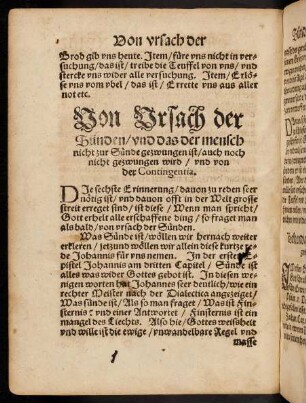 Von vrsach der
Brod gib vns heute. Item/ füre vns nicht in ver-
suchung/ das ist/ treibe die Teuffel von vns/ vnd
stercke vns wider alle versuchung. Item/ Erlö-
se vns vom vbel/ das ist/ Errette vns aus aller
not etc.
Von Vrsach der
Sünden/ vnd das der mensch
nicht zur Sünde gezwungen ist/ auch noch
nicht gezwungen wird/ vnd von
der Contingentia.
DIe sechste Erinnerung/ dauon zu reden seer
nötig ist/ vnd dauon offt in der Welt grosse
streit erreget sind/ ist diese/ Wenn man spricht/
Gott erhelt alle erschaffene ding/ so fraget man
als bald/ von vrsach der Sünden.
Was Sünde ist/ wöllen wir hernach weiter
erkleren/ jetzund wöllen wir allein diese kurtz rede
Johannis für vns nemen. In der ersten Epi-
stel Johannis am dritten Capitel/ Sünde ist
alles was wider Gottes gebot ist. In diesen we-
nigen worten hat Johannes seer deutlich/ wie ein
rechter Meister nach der Dialectica angezeiget/
Was sünde ist/ Als so man fraget/ Was ist Fin-
sternis? vnd einer Antwortet/ Finsternis ist ein
mangel des Liechts. Also die/ Gottes weissheit
vnd wille ist die ewige/ vnwandelbare Regel vnd
masse